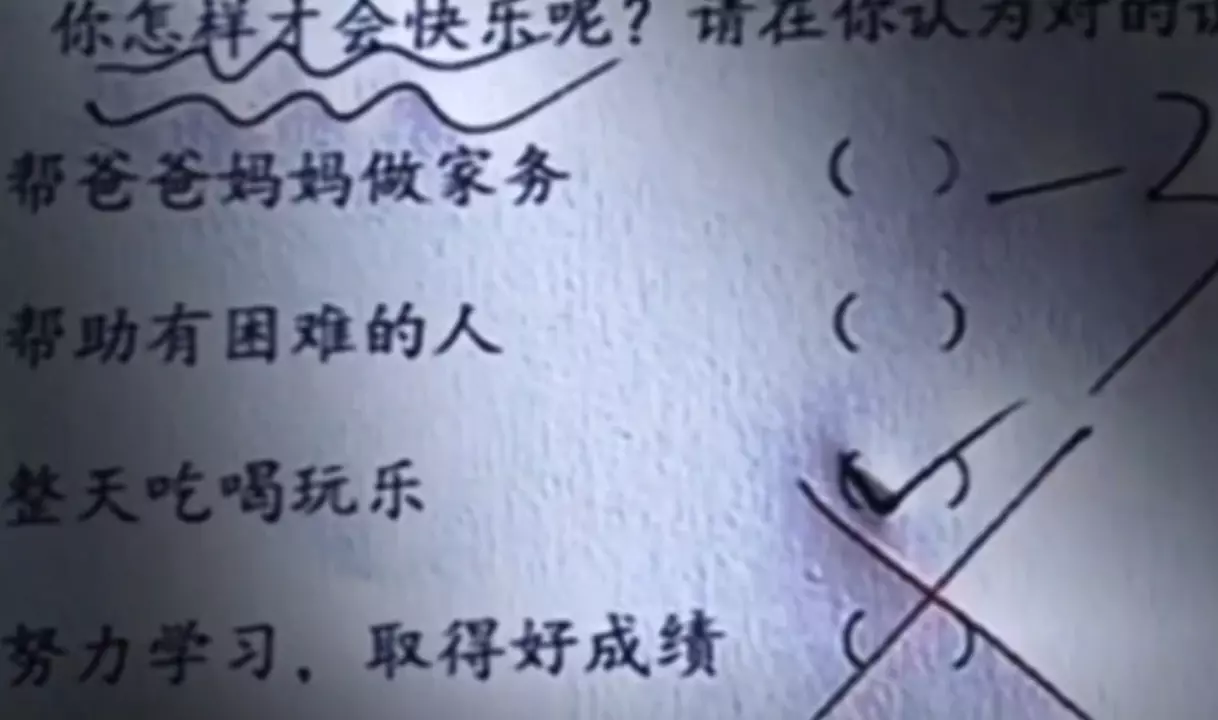 你怎样才会快乐呢?请在你认为对的
帮爸爸妈妈做家务 ( ) —2
帮助有困难的人 ( )
整天吃喝玩乐 (✓)
努力学习，取得好成绩 ( )